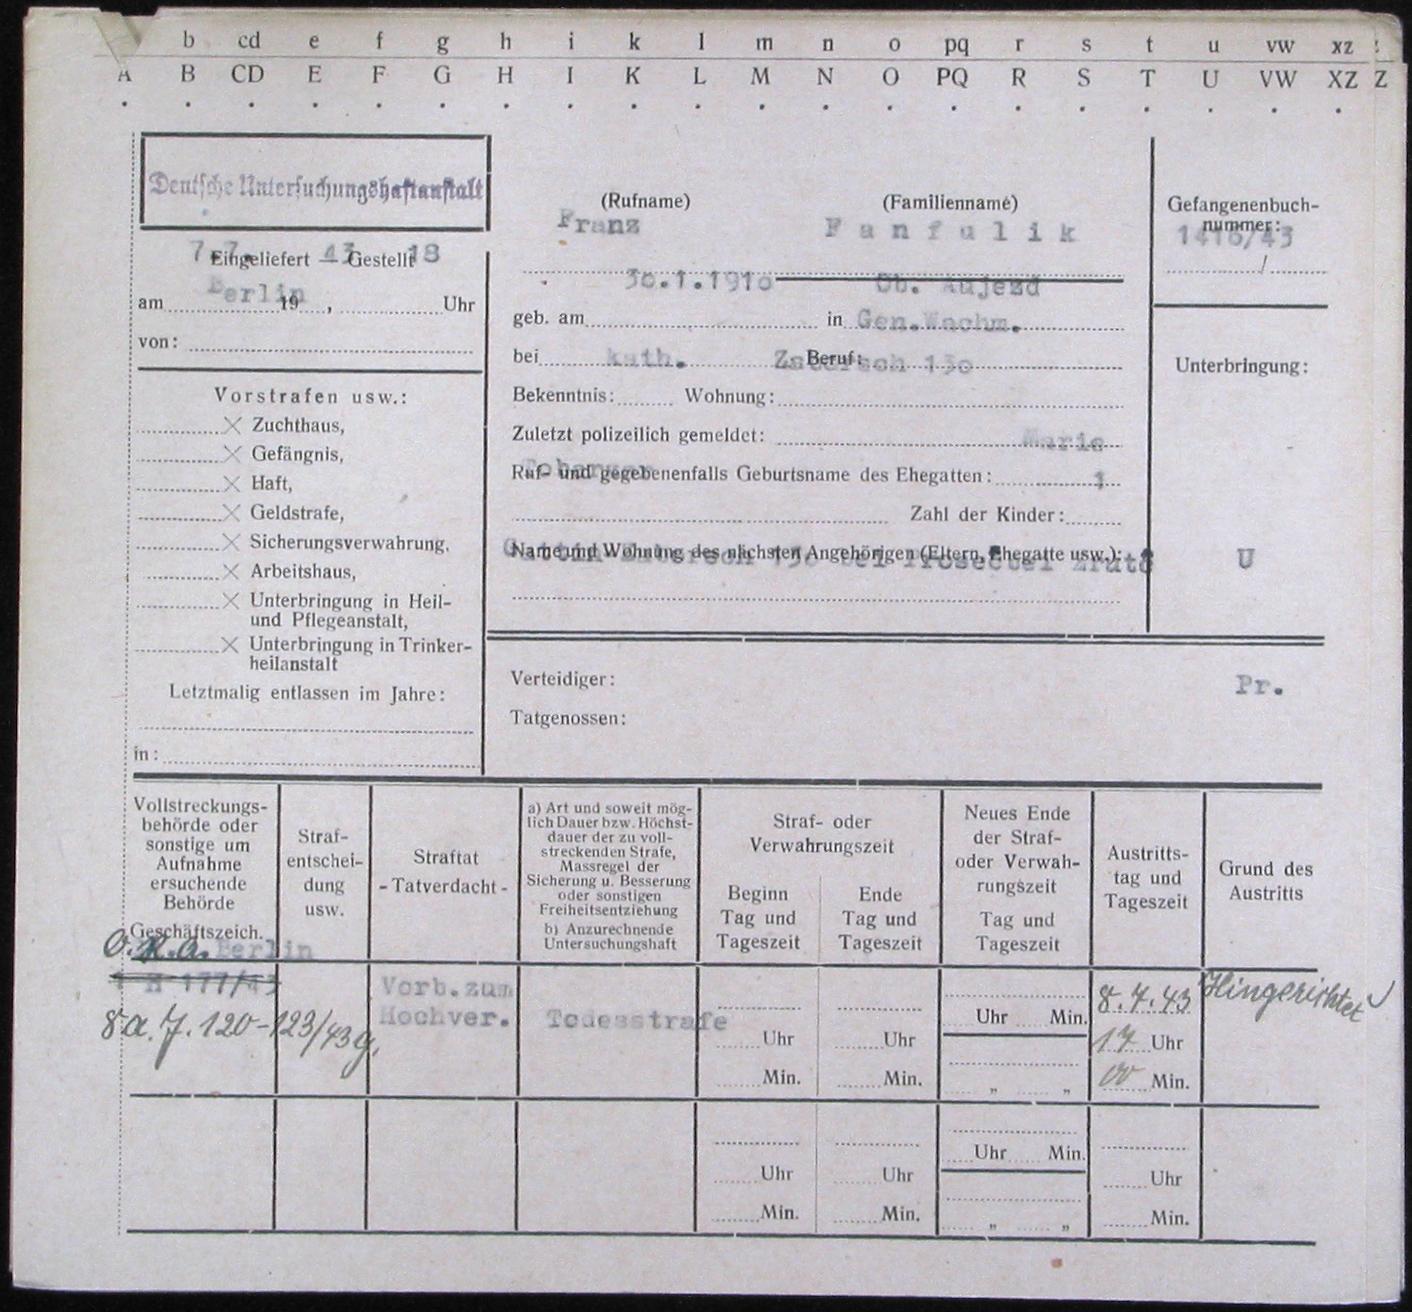 b cd e f g h i k l m n o pq r s t u vw xz z
A B CD E F G H I K L M N O PQ R S T U VW XZ Z
Deutsche Untersuchungshaftanstalt
(Rufname) (Familienname)
Franz Fanfulik
Gefangenenbuch-
nummer:
1416/43
/
7.7. 43 18
Eingeliefert — Gestellt
Berlin
am 19 , Uhr
von:
30.1.1910 Ob. Aujezd
geb. am in Gen.Wachm.
bei kath. Beruf: 130
Bekenntnis: Wohnung:
Zuletzt polizeilich gemeldet: Marie
Ruf- und gegebenenfalls Geburtsname des Ehegatten: 1
Zahl der Kinder:
Name und Wohnung des nächsten Angehörigen (Eltern, Ehegatte usw.):
Gattin
Unterbringung:
U
Vorstrafen usw.:
× Zuchthaus,
× Gefängnis,
× Haft,
× Geldstrafe,
× Sicherungsverwahrung,
× Arbeitshaus,
× Unterbringung in Heil-
und Pflegeanstalt,
× Unterbringung in Trinker-
heilanstalt
Letztmalig entlassen im Jahre:
in:
Verteidiger:
Pr.
Tatgenossen:
Vollstreckungs-
behörde oder
sonstige um
Aufnahme
ersuchende
Behörde
Geschäftszeich.
Straf-
entschei-
dung
usw.
Straftat
- Tatverdacht -
a) Art und soweit mög-
lich Dauer bzw. Höchst-
dauer der zu voll-
streckenden Strafe,
Massregel der
Sicherung u. Besserung
oder sonstigen
Freiheitsentziehung
b) Anzurechnende
Untersuchungshaft
Straf- oder
Verwahrungszeit
Beginn
Tag und
Tageszeit
Ende
Tag und
Tageszeit
Neues Ende
der Straf-
oder Verwah-
rungszeit
Tag und
Tageszeit
Austritts-
tag und
Tageszeit
Grund des
Austritts
O.R.A. Berlin
H 177/43
8 a. J. 120-123/43 g.
Vorb.zum
Hochver.
Todesstrafe
Uhr
Min.
Uhr
Min.
Uhr Min.
" "
8.7.43
17 Uhr
00 Min.
Hingerichtet
Uhr
Min.
Uhr
Min.
Uhr Min.
" "
Uhr
Min.